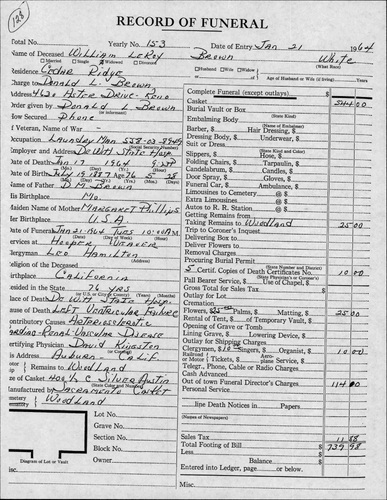 128
RECORD OF FUNERAL
Total No. Yearly No. 153 Date of Entry Jan 21 1964
Name of Deceased William LeRoy Brown White
Married Single Widowed Divorced Husband Wife Widow of (What Race)
Residence Cedar Ridge Age of Husband or Wife (if living) Years
Charge to Donald L. Brown
Address 4620 Aster Drive - Reno
Order given by Donald L Brown
How Secured Phone
If Veteran, Name of War
Occupation Laundry Man
Employer and Address DeWitt State Hosp.
Date of Death Jan 17 1964
Date of Birth July 19 1887 Age 76 5 28
Name of Father D.M. Brown
His Birthplace Mo
Maiden Name of Mother Margaret Phillips
Her Birthplace U.S.A.
Date of Funeral Jan 21 1964 Tues 10:00AM
Services at Hooper Weaver
Clergyman Leo Hamilton
Religion of the Deceased
Birthplace California
Resided in the State 76 yrs
Place of Death DeWitt State Hosp.
Cause of Death Left Ventricular Failure
Contributory Causes Arteriosclerotic
Cardio Renal Vascular Disease
Certifying Physician David Kingston
His Address Auburn Calif.
Remains to Woodland
Size of Casket Silver Austin
Manufactured by Sacramento Casket
Cemetery Woodland
Lot No.
Grave No.
Section No.
Block No.
Owner
Diagram of Lot or Vault
Complete Funeral (except outlays) $
Casket 544 00
Burial Vault or Box
(State Kind)
Embalming Body
Barber, $ Hair Dressing, $
Dressing Body, $ Underwear, $
Suit or Dress
(State Kind and Color)
Slippers, $ Hose, $
Folding Chairs, $ Tarpaulin, $
Candelabrum, $ Candles, $
Door Spray, $ Gloves, $
Funeral Car, $ Ambulance, $
Limousines to Cemetery @ $
Extra Limousines @ $
Autos to R. R. Station @ $
Getting Remains from
Taking Remains to Woodland 25 00
Trip to Coroner's Inquest
Delivering Box to
Deliver Flowers to
Removal Charges
Procuring Burial Permit
5 Certif. Copies of Death Certificates No. 10 00
Pall Bearer Service, $ Use of Chapel, $
Gross Total for Sales Tax $
Outlay for Lot
Cremation
Flowers, $25.00 Palms, $ Matting, $ 25 00
Rental of Tent, $ of Temporary Vault, $
Opening of Grave or Tomb
Lining Grave, $ Lowering Device, $
Outlay for Shipping Charges
Clergymen, $10 Singers, $ Organist, $ 10 00
Railroad or Motor Tickets, $ Aeroplane Service, $
Telegr., Phone, Cable or Radio Charges
Cash Advanced
Out of town Funeral Director's Charges 114 00
Personal Service
line Death Notices in Papers
(Names of Newspapers)
Sales Tax 11 98
Total Footing of Bill $ 739 98
Less $
Balance $
Entered into Ledger, page or below.
Misc.